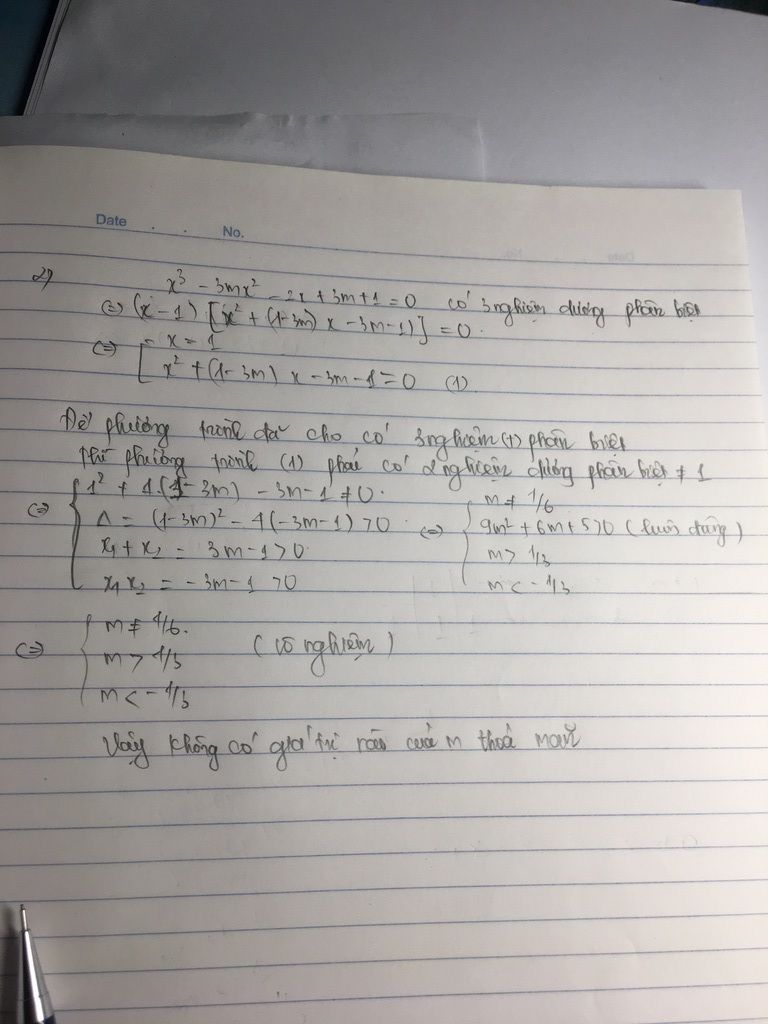 Date . . No.
2)
x³ - 3mx² - 2x + 3m + 1 = 0 có 3 nghiệm dương phân biệt
⇔ (x - 1) [x² + (1-3m) x - 3m - 1)] = 0.
⇔ [ x = 1
x² + (1 - 3m) x - 3m - 1 = 0 (1)
Để phương trình đã cho có 3 nghiệm (+) phân biệt
thì phương trình (1) phải có 2 nghiệm dương phân biệt ≠ 1
⇔ { 1² + 1.(1 - 3m) - 3m - 1 ≠ 0. ⇔ { m ≠ 1/6
Δ = (1 - 3m)² - 4(-3m - 1) > 0. 9m² + 6m + 5 > 0 (luôn đúng)
x₁ + x₂ = 3m - 1 > 0. m > 1/3
x₁ x₂ = - 3m - 1 > 0 m < - 1/3
⇔ { m ≠ 1/6.
m > 1/3 (vô nghiệm)
m < - 1/3
Vậy không có giá trị nào của m thoả mãn